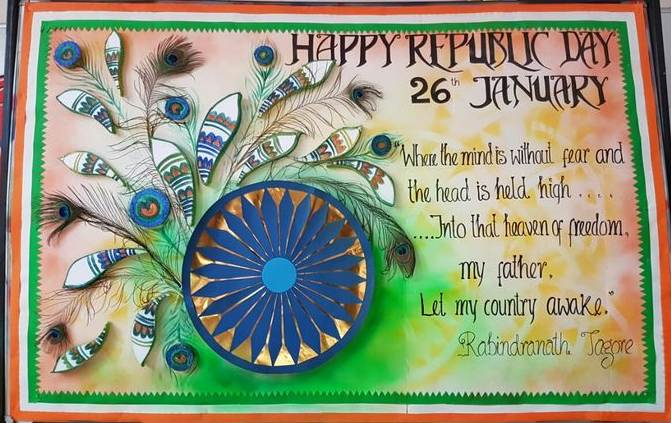 HAPPY REPUBLIC DAY
26th JANUARY
"Where the mind is without fear and
the head is held high ....
....Into that heaven of freedom,
my father,
Let my country awake."
Rabindranath Tagore